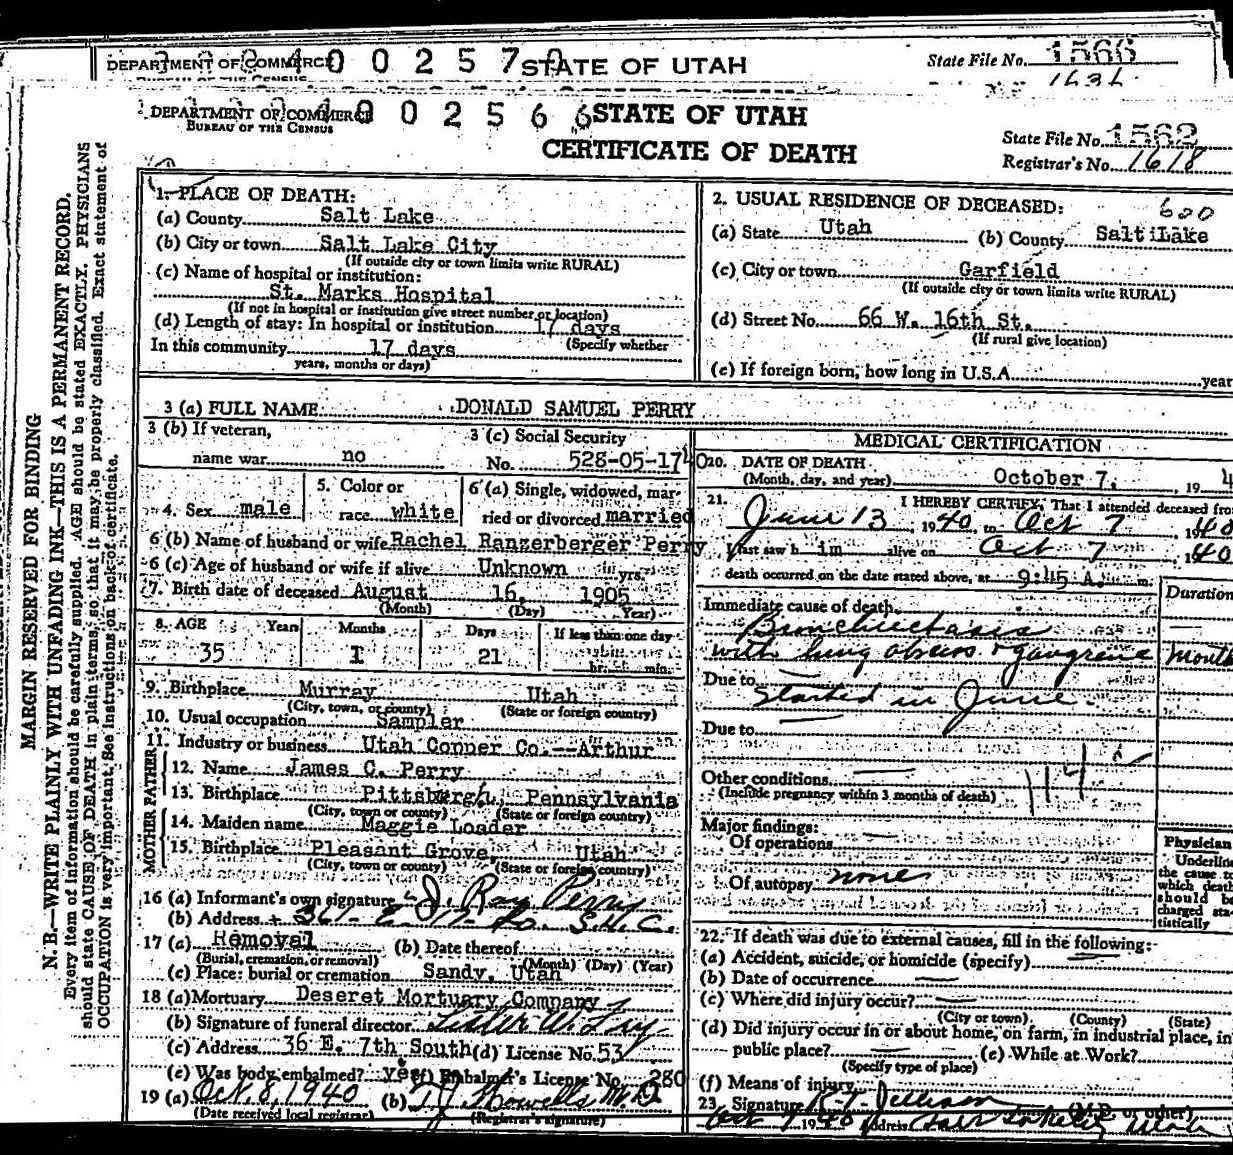 DEPARTMENT OF COMMERCE 0 0 2 5 7 0 STATE OF UTAH
State File No. 1566
BUREAU OF THE CENSUS
1636
DEPARTMENT OF COMMERCE 0 0 2 5 6 6 STATE OF UTAH
BUREAU OF THE CENSUS
CERTIFICATE OF DEATH
State File No. 1562
Registrar's No. 1618
MARGIN RESERVED FOR BINDING
N. B.—WRITE PLAINLY WITH UNFADING INK—THIS IS A PERMANENT RECORD.
Every item of information should be carefully supplied. AGE should be stated EXACTLY. PHYSICIANS
should state CAUSE OF DEATH in plain terms, so that it may be properly classified. Exact statement of
OCCUPATION is very important. See instructions on back of certificate.
1. PLACE OF DEATH:
(a) County Salt Lake
(b) City or town Salt Lake City
(If outside city or town limits write RURAL)
(c) Name of hospital or institution:
St. Marks Hospital
(If not in hospital or institution give street number or location)
(d) Length of stay: In hospital or institution 17 days
(Specify whether
In this community 17 days
years, months or days)
2. USUAL RESIDENCE OF DECEASED: 600
(a) State Utah (b) County Salt Lake
(c) City or town Garfield
(If outside city or town limits write RURAL)
(d) Street No. 66 W. 16th St.
(If rural give location)
(e) If foreign born, how long in U.S.A. year
3 (a) FULL NAME DONALD SAMUEL PERRY
3 (b) If veteran,
name war no
3 (c) Social Security
No. 528-05-17
4. Sex male
5. Color or
race white
6 (a) Single, widowed, mar-
ried or divorced married
6 (b) Name of husband or wife Rachel Ranzerberger Perry
6 (c) Age of husband or wife if alive Unknown yrs.
7. Birth date of deceased August 16, 1905
(Month) (Day) Year)
8. AGE Years Months Days If less than one day
35 1 21 hr. min.
9. Birthplace Murray Utah
(City, town, or county) (State or foreign country)
10. Usual occupation Sampler
11. Industry or business Utah Copper Co.--Arthur
FATHER
12. Name James C. Perry
13. Birthplace Pittsburgh, Pennsylvania
(City, town or county) (State or foreign country)
MOTHER
14. Maiden name Maggie Loader
15. Birthplace Pleasant Grove Utah
(City, town or county) (State or foreign country)
16 (a) Informant's own signature J. Ray Perry
(b) Address 361 E. 17 So. S.L.C.
17 (a) Removal (b) Date thereof
(Burial, cremation, or removal) (Month) (Day) (Year)
(c) Place: burial or cremation Sandy, Utah
18 (a) Mortuary Deseret Mortuary Company
(b) Signature of funeral director Lester W.
(c) Address 36 E. 7th South (d) License No. 53
(e) Was body embalmed? Yes (f) Embalmer's License No. 280
19 (a) Oct. 8, 1940 (b) T.J. Howells M.D.
(Date received local registrar) (Registrar's signature)
MEDICAL CERTIFICATION
20. DATE OF DEATH
(Month, day, and year) October 7, 19 4
21. I HEREBY CERTIFY, That I attended deceased from
June 13, 1940 to Oct 7 1940
I last saw h im alive on Oct 7 1940
death occurred on the date stated above, at 9:45 A. m.
Duration
Immediate cause of death
Bronchiectasis
with lung abscess & gangrene Month
Due to started in June.
Due to
Other conditions
(Include pregnancy within 3 months of death)
114
Major findings:
Of operations
Of autopsy none
Physician
Underline
the cause to
which death
should be
charged sta-
tistically
22. If death was due to external causes, fill in the following:
(a) Accident, suicide, or homicide (specify)
(b) Date of occurrence
(c) Where did injury occur?
(City or town) (County) (State)
(d) Did injury occur in or about home, on farm, in industrial place, in
public place? (e) While at Work?
(Specify type of place)
(f) Means of injury
23. Signature R.T. Jellison
(M.D. or other)
Oct 7 1940 Address Salt Lake City Utah